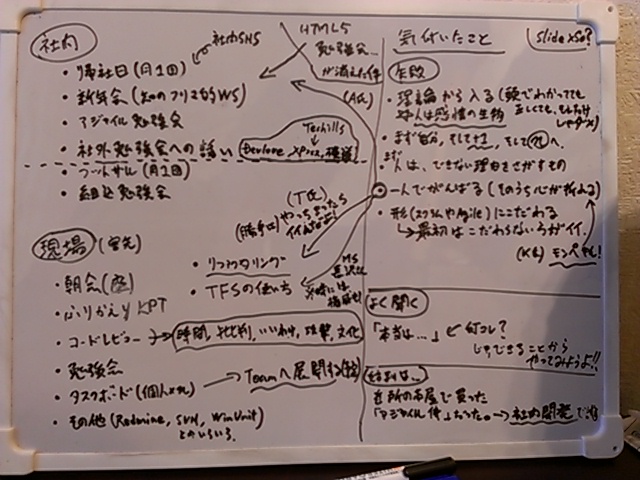 社内
社内SNS
・帰社日(月1回)
・新年会(知のフリマ的WS)
・アジャイル勉強会
・社外勉強会への誘い
Devlove, XPJUG, 横浜
・フットサル(月1回)
・組込勉強会
HTML5
勉強会…
が消えた件
(A氏)
現場(客先)
・朝会
・ふりかえり KPT
・コードレビュー→時間, 批判, いいわけ, 攻撃, 文化
・勉強会
・タスクボード(個人タスク)→Teamへ展開
・その他(Redmine, SVN, WinUnit)
とかいろいろ.
(T氏)
(勝手に)やっちまったら
・リファクタリング
・TFSの使い方
MS
気付いたこと
slide
失敗
・理論から入る(頭でわかってても
人は感情の生物
正しくても,
・まず自分, そして
そして
へ.
・人は、できない理由をさがすもの
一人でがんばる(そのうち心が折れる)
・形(スクラムやAgile)にこだわる
→最初はこだわらない方がイイ.
(K氏)
よく聞く
「本当は…」
何コレ?
じゃ、できることから
やってみようよ!!
始まりは…
近所の本屋で買った
「アジャイル
」だった。→社内開発で